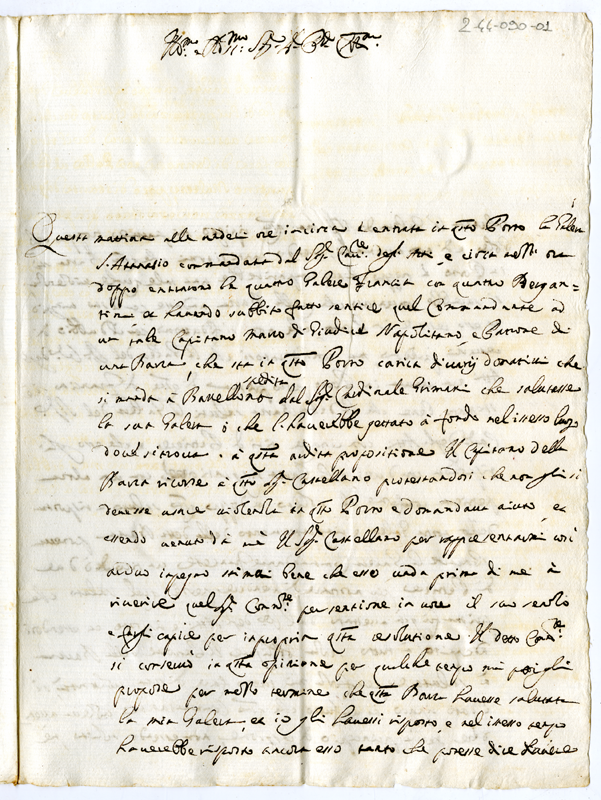 2-44-090-01
Ill.mo e Rev.mo Sig.r
Questa mattina alle undeci ore in circa è entrata in q.to Porto la Galera
S. Atanasio commandata dal Sig.r Cav.re e circa mezz'ora
doppo entrarono la quatro Galere Francia con quatro Bergan=
tini, et havendo subbito fatto sentire quel Commandante ad
un tale Capitano Marco di Giudice Napolitano, e Patrone di
una Barca, che sta in q.to Porto carica di varij donativi che
si manda à Barcellona spedita dal Sig.r Cardinale Grimani che salutasse
la sua Galera, ò che l'haverebbe gettato à fondo nel istesso luogo
dove si trova. à q.ta ardita propositione il Capitano della
Barca ricorse à q.to Sig.r Castellano protestandosi che non gli si
devesse usare violenza in q.to Porto e domandava aiuto, et
essendo venuto da me il Sig.r Castellano per rappresentarmi così
arduo impegno stimai bene che esso vada prima di me à
riverire quel Sig.r Comm.te per sentirne in voce il suo senso
e farli capire per impropria q.ta resolutione. Il detto Com.te
si conservò in q.ta opinione per qualche tempo mà poi gli
propose per mezzo termine che q.ta Barca havesse salutata
la mia Galera, et io gli havessi risposto, e nel istesso tempo
haverebbe risposto ancora esso tanto che potesse dire havere